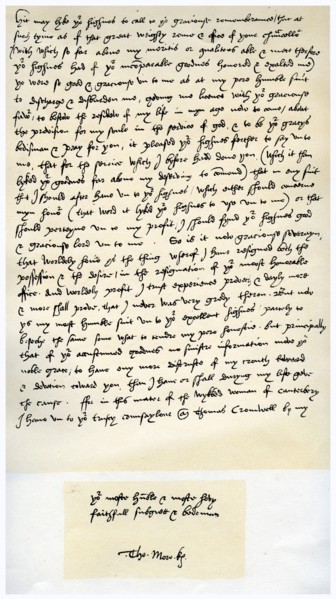 Hit may like yor highnes to call to yor graciouse remembraunce, that at
such tyme as of that great weighty rome & office of yor chauncellor
(with which so far above my merites or qualities able & mete therefore
yor highnes had of yor incomparable goodnes honored & exalted me)
ye were so good & graciouse un to me as at my pore humble suit
to discharge & disburden me, geving me licence with yor graciouse
favor to bestow the residew of my life in myn age now to come, abowt
the provision for my soule in the service of god, & to be yor gracys
bedisman & pray for you, it pleased yor highnes ferther to say un to
me, that for the service which I before had done you (which it then
lyked yor goodnes far above my deserving to commend) that in eny suit
that I should after have un to yor highnes, which either should concerne
myn honor (that word it lyked yor highnes to use un to me) or that
should perteyne un to my profit, I should fynd yor highnes good
& graciouse lord un to me. So is it now graciouse soverayn,
that worldely honor is the thing wherof I have resigned both the
possession & the desire, in the resignation of yor most honorable
office. And worldely profit, I trust experience proveth, & dayly more
& more shall prove, that I never was very gredy theron. But now
ys my most humble suit un to yor excellent highnes, partely to
bisech the same some what to tendre my pore honestie, but principally
that of yor accustumed goodnes no sinistre information move yor
noble grace, to have eny more distruste of my trouth
& devotion toward you, than I have or shall duryng my life geve
the cause. ffor in this mater of the wykked woman of canterbery
I have un to yor trusty counsaylour Thomas Cromwell by my
yor moste humble & moste hevy
faithfull subgiet & bedeman
Tho. More. kg.